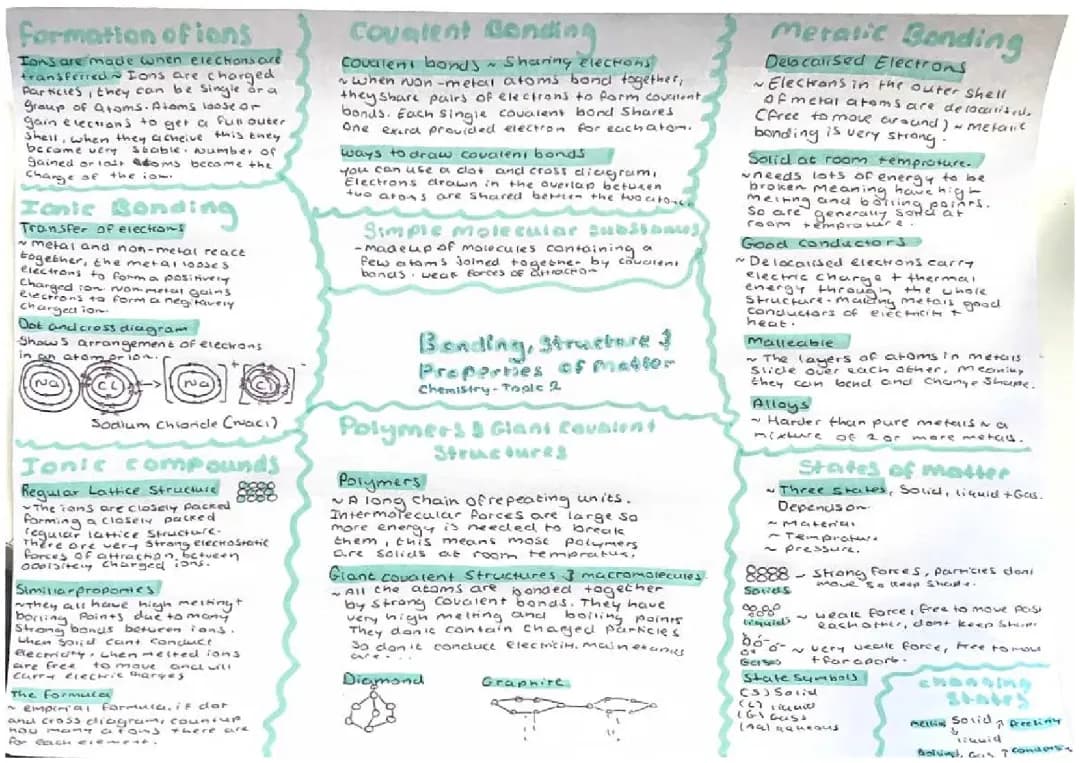 Formation of ions
Ions are made when electrons are
transferred ~ Ions are charged
Particles, they can be single or a
group of atoms. Atoms loose or
gain electrons to get a full outer
shell, when they acheive this they
become very stable. Number of
gained or lost atoms become the
Charge of the ion.
Ionic Bonding
Transfer of electrons
~ metal and non-metal react
together, the metal looses
electrons to form a positively
Charged ion. Non-metal gains
electrons to form a negitavely
charged ion.
Dot and cross diagram
- Shows arrangement of electrons
in an atom or ion.
Na Cl → [Na]+ [Cl]-
Sodium Chloride (NaCl)
Ionic compounds
Regular Lattice Structure
~ The ions are closely packed
forming a closely packed
regular lattice structure.
There are very strong electrostatic
forces of attraction, between
oppisitely charged ions.
Similar properties
~ They all have high melting +
boiling points due to many
strong bonds between ions.
When solid cant conduct
electricity, when melted ions
are free to move and will
carry electric charges
The formula
~ emperial formula, if dot
and cross diagram, count up
how many atoms there are
for each element.
Covalent Bonding
Covalent bonds ~ Sharing electrons
~ When non-metal atoms bond together,
they share pairs of electrons to form covalent
bonds. Each single covalent bond shares
One extra provided electron for each atom.
Ways to draw covalent bonds
you can use a dot and cross diagram,
Electrons drawn in the overlap between
two atoms are shared between the two atoms
Simple molecular Substances
- Made up of molecules containing a
few atoms joined together by covalent
bonds. weak forces of attraction
Bonding, Structure &
Properties of matter
Chemistry - Topic 2
Polymers & Giant Covalent
Structures
Polymers
~ A long chain of repeating units.
Intermolecular forces are large so
more energy is needed to break
them, this means most polymers
are solids at room temprature.
Giant covalent Structures & macromolecules
~ All the atoms are bonded together
by strong covalent bonds. They have
very high melting and boiling points
They don't contain charged particles
So don't conduct electricity. main
are ...
Diamond Graphite
Metalic Bonding
Delocalised Electrons
~ Electrons in the outer shell
of metal atoms are delocalised.
(free to move around) ~ metalic
bonding is very strong.
Solid at room temprature.
~ needs lots of energy to be
broken meaning have high
melting and boiling points.
So are generally solid at
room temprature.
Good conductors
~ Delocalised electrons carry
electric charge + thermal
energy through the whole
structure. Making metals good
conductors of electricity +
heat.
Malleable
~ The layers of atoms in metals
slide over each other, meaning
they can bend and change shape.
Alloys
~ Harder than pure metals ~ a
mixture of 2 or more metals.
States of matter
~ Three states, Solid, liquid + Gas.
Depends on
~ Material
~ Temprature
~ pressure.
~ Strong forces, particles dont
move so keep shape.
Solids
~ weak force, free to move past
each other, dont keep shape
liquids
~ very weak force, free to move
+ far apart.
Gases
State Symbols
(S) Solid
(L) liquid
(G) Gass
(Aq) aqueous
Changing
States
melting Solid ↑ freezing
liquid
Boiling, Gas ↑